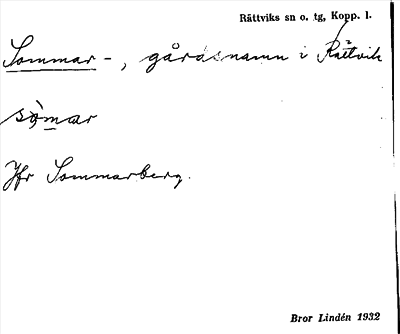 Rättviks sn o. tg, Kopp. l.
Sommar-, gårdsnamn i Rättvik
sòmar
Jfr Sommarberg.
Bror Lindén 1932